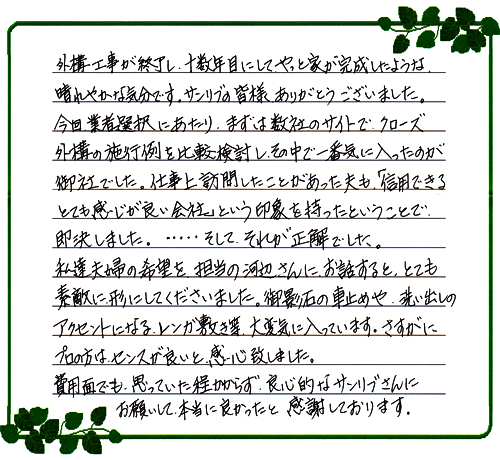 外構工事が終了し、十数年目にしてやっと家が完成したような、
晴れやかな気分です。サンリブの皆様、ありがとうございました。
今回業者選択にあたり、まずは数社のサイトで、クローズ
外構の施行例を比較検討し、その中で一番気に入ったのが
御社でした。仕事上訪問したことがあった夫も、「信用できる
とても感じが良い会社」という印象を持ったということで、
即決しました。……そして、それが正解でした。
私達夫婦の希望を、担当の河辺さんにお話すると、とても
素敵に形にしてくださいました。御影石の車止めや、洗い出しの
アクセントになる、レンガ敷き等、大変気に入っています。さすがに
プロの方は、センスが良いと、感心致しました。
費用面でも、思っていた程かからず、良心的なサンリブさんに
お願いして、本当に良かったと、感謝しております。